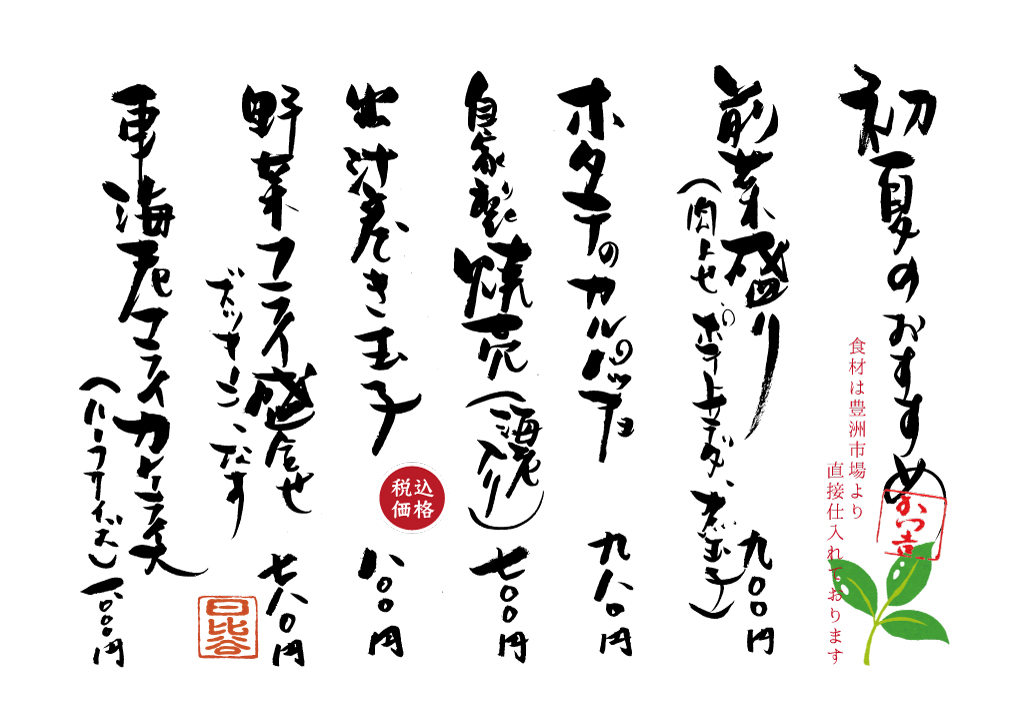 初夏のおすすめ
食材は豊洲市場より
直接仕入れております
前菜盛り 九〇〇円
(肉よせ、ポテトサラダ、煮玉子)
ホタテのカルパッチョ 九八〇円
自家製焼売(海老入り) 七〇〇円
出汁巻き玉子 八〇〇円
税込
価格
野菜フライ盛合せ 七八〇円
ズッキーニ、なす
車海老フライカレーライス
(ハーフサイズ) 一、〇〇〇円
日比谷